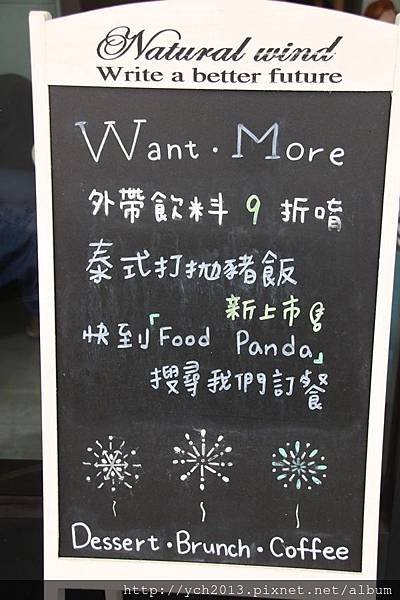 Natural wind
Write a better future
Want · More
外帶飲料 9 折唷
泰式打拋豬飯
新上市
快到「Food Panda」
搜尋我們訂餐
Dessert · Brunch · Coffee
http://ych2013.pixnet.net/album